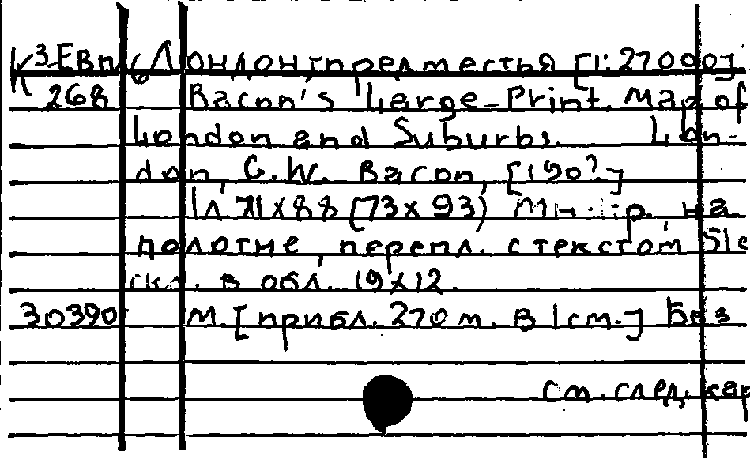 К 3-Евп 6 Лондон, предместья [1:27000].
268 Bacon's Large-Print. Map of
London and Suburbs. Lon-
don, G.W. Bacon, [190?]
1л. 71×88 (73×93) на
полотне, перепл. с текстом
скл. в обл. 19×12.
30390 М. [прибл. 270 м. в 1 см.] Без
см. след. кар